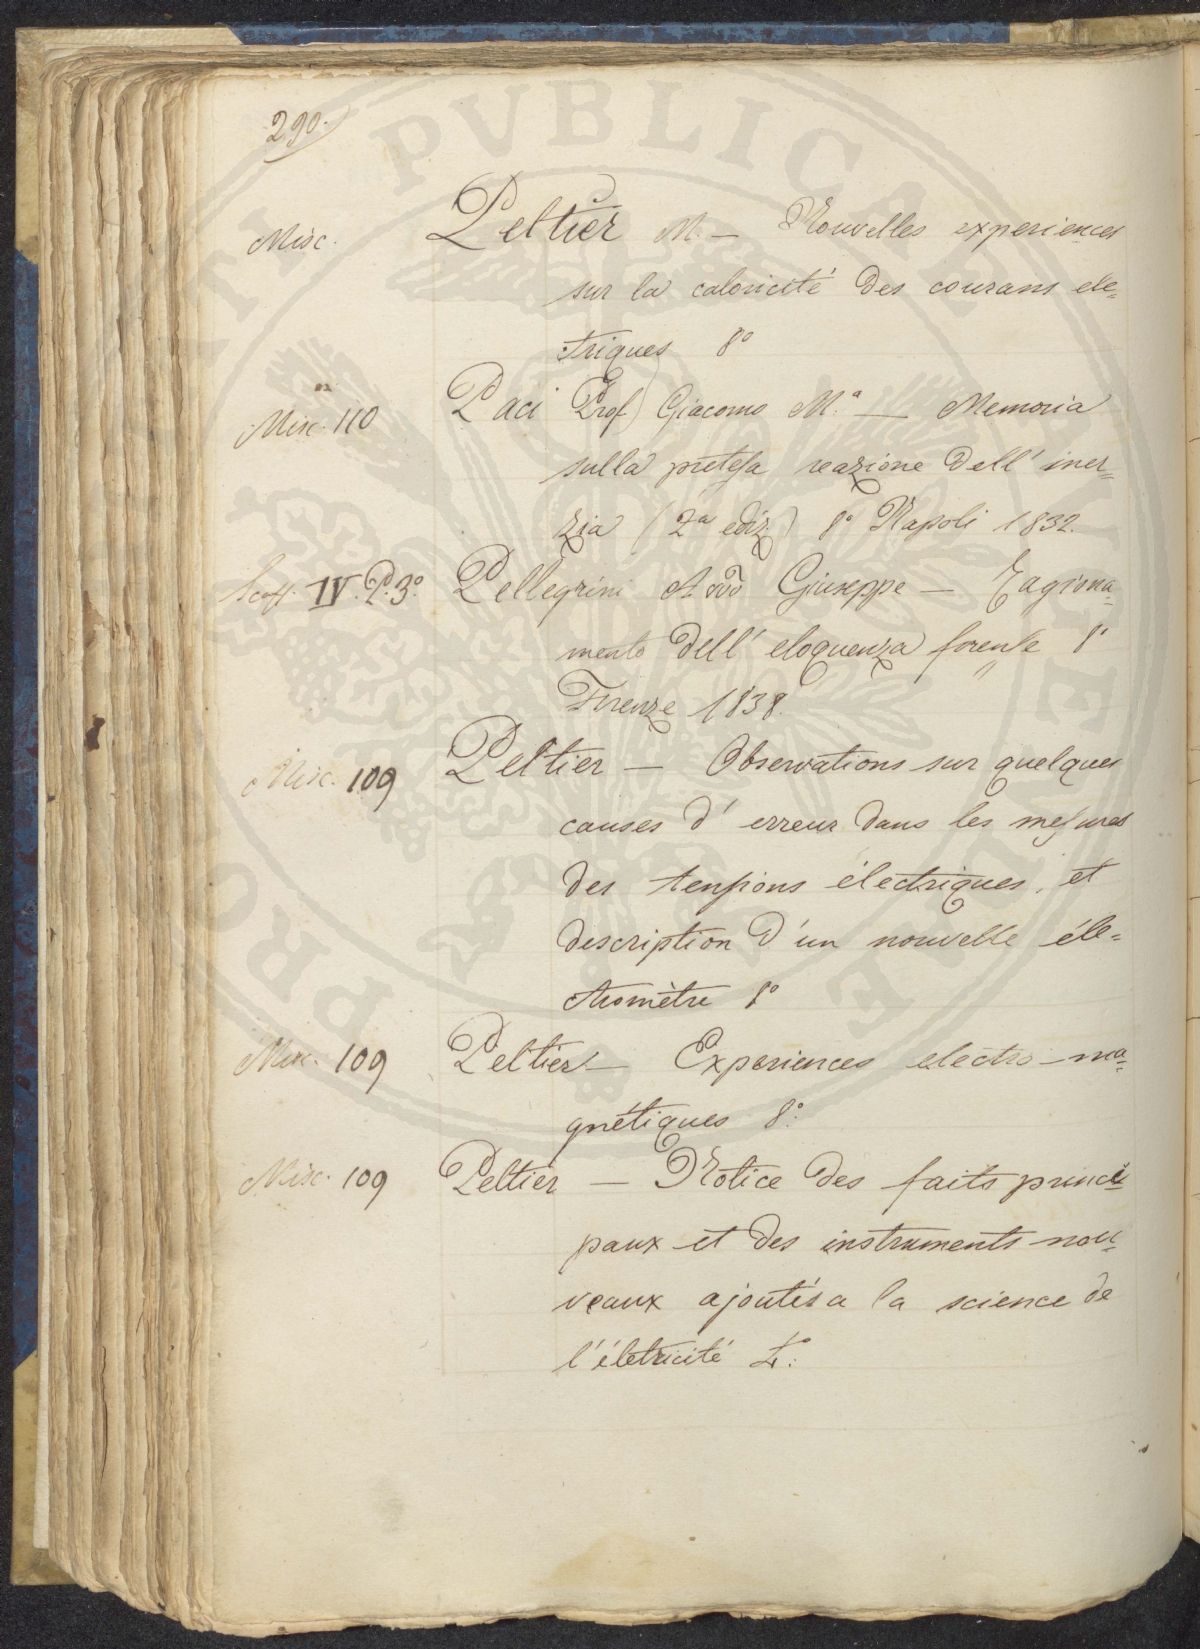 290.
Misc. Peltier M. — Nouvelles experiences
sur la caloricité des courans ele=
triques 8°
Misc. 110 Paci Prof) Giacomo M.ª — Memoria
sulla pretesa reazione dell' iner=
zia (2ª ediz.) 8° Napoli 1832.
Scaff. IV. P. 3° Pellegrini Avvo Giuseppe — Ragiona=
mento dell' eloquenza forense 8°
Firenze 1838.
Misc. 109 Peltier — Observations sur quelques
causes d' erreur dans les mesures
des tensions électriques, et
description d'un nouvelle éle=
ctromètre 8°
Misc. 109 Peltier — Experiences electro-ma=
gnétiques 8°:
Misc. 109 Peltier — Notice des faits princi=
paux et des instruments nou=
veaux ajoutés a la science de
l'életricité 4°: